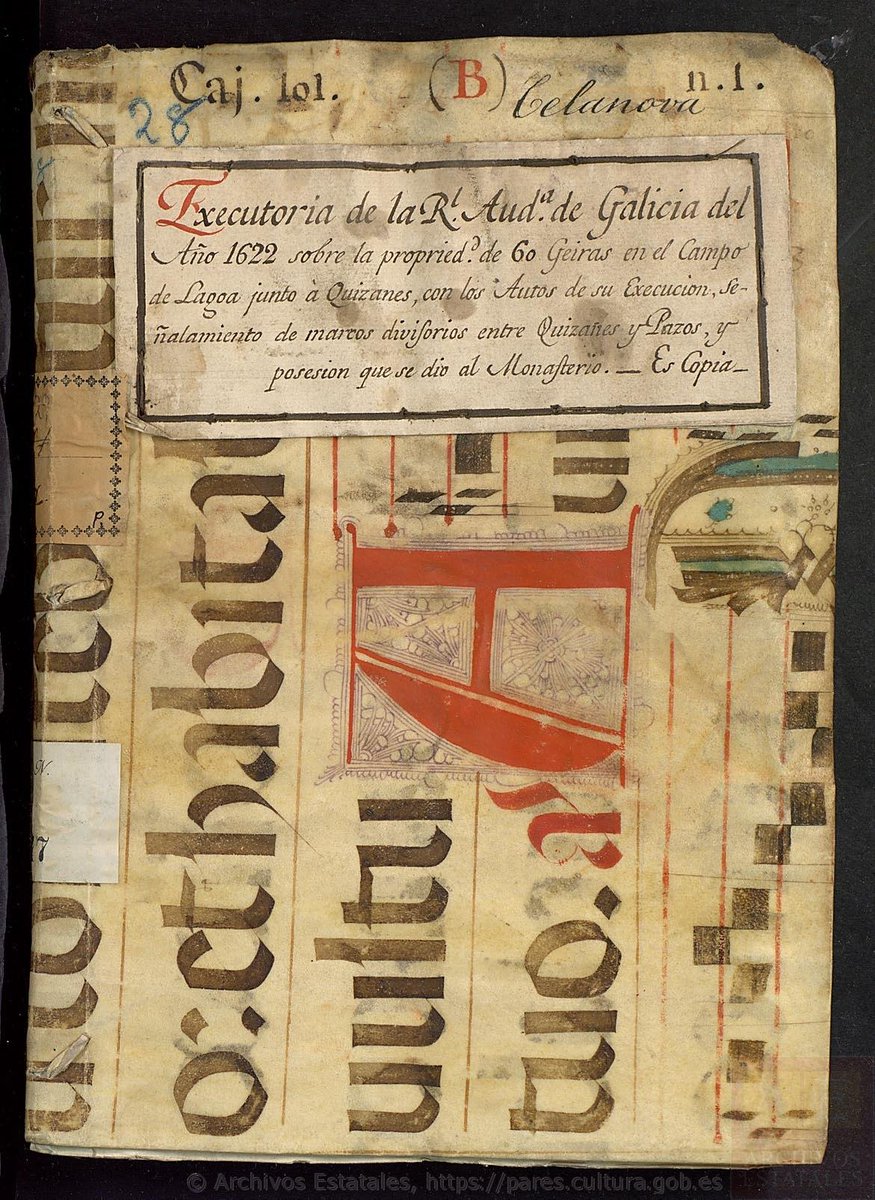 Caj. 101. (B) n. 1.
28 Celanova
Executoria de la R.l Aud.a de Galicia del
Año 1622 sobre la propried.d de 60 Geiras en el Campo
de Lagoa junto à Quizanes, con los Autos de su Execucion, se-
ñalamiento de marcos diviſorios entre Quizañes y Pazos, y
posesion que se dio al Monaſterio. — Es Copia—
P.
N.
o: et habitat
uultu
tuo. R
© Archivos Estatales, https://pares.cultura.gob.es